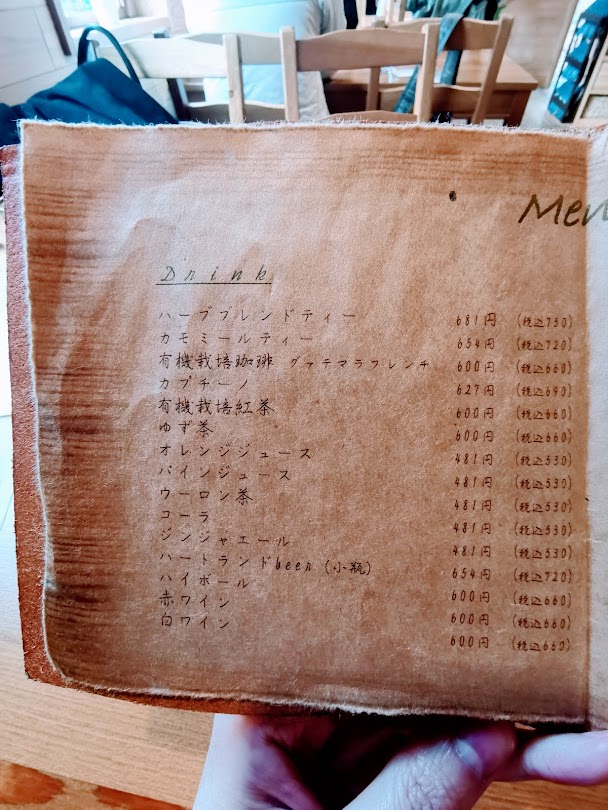 Men
Drink
ハーブブレンドティー 681円 (税込750)
カモミールティー 654円 (税込720)
有機栽培珈琲 グァテマラフレンチ 600円 (税込660)
カプチーノ 627円 (税込690)
有機栽培紅茶 600円 (税込660)
ゆず茶 600円 (税込660)
オレンジジュース 481円 (税込530)
パインジュース 481円 (税込530)
ウーロン茶 481円 (税込530)
コーラ 481円 (税込530)
ジンジャエール 481円 (税込530)
ハートランドbeer (小瓶) 654円 (税込720)
ハイボール 600円 (税込660)
赤ワイン 600円 (税込660)
白ワイン 600円 (税込660)